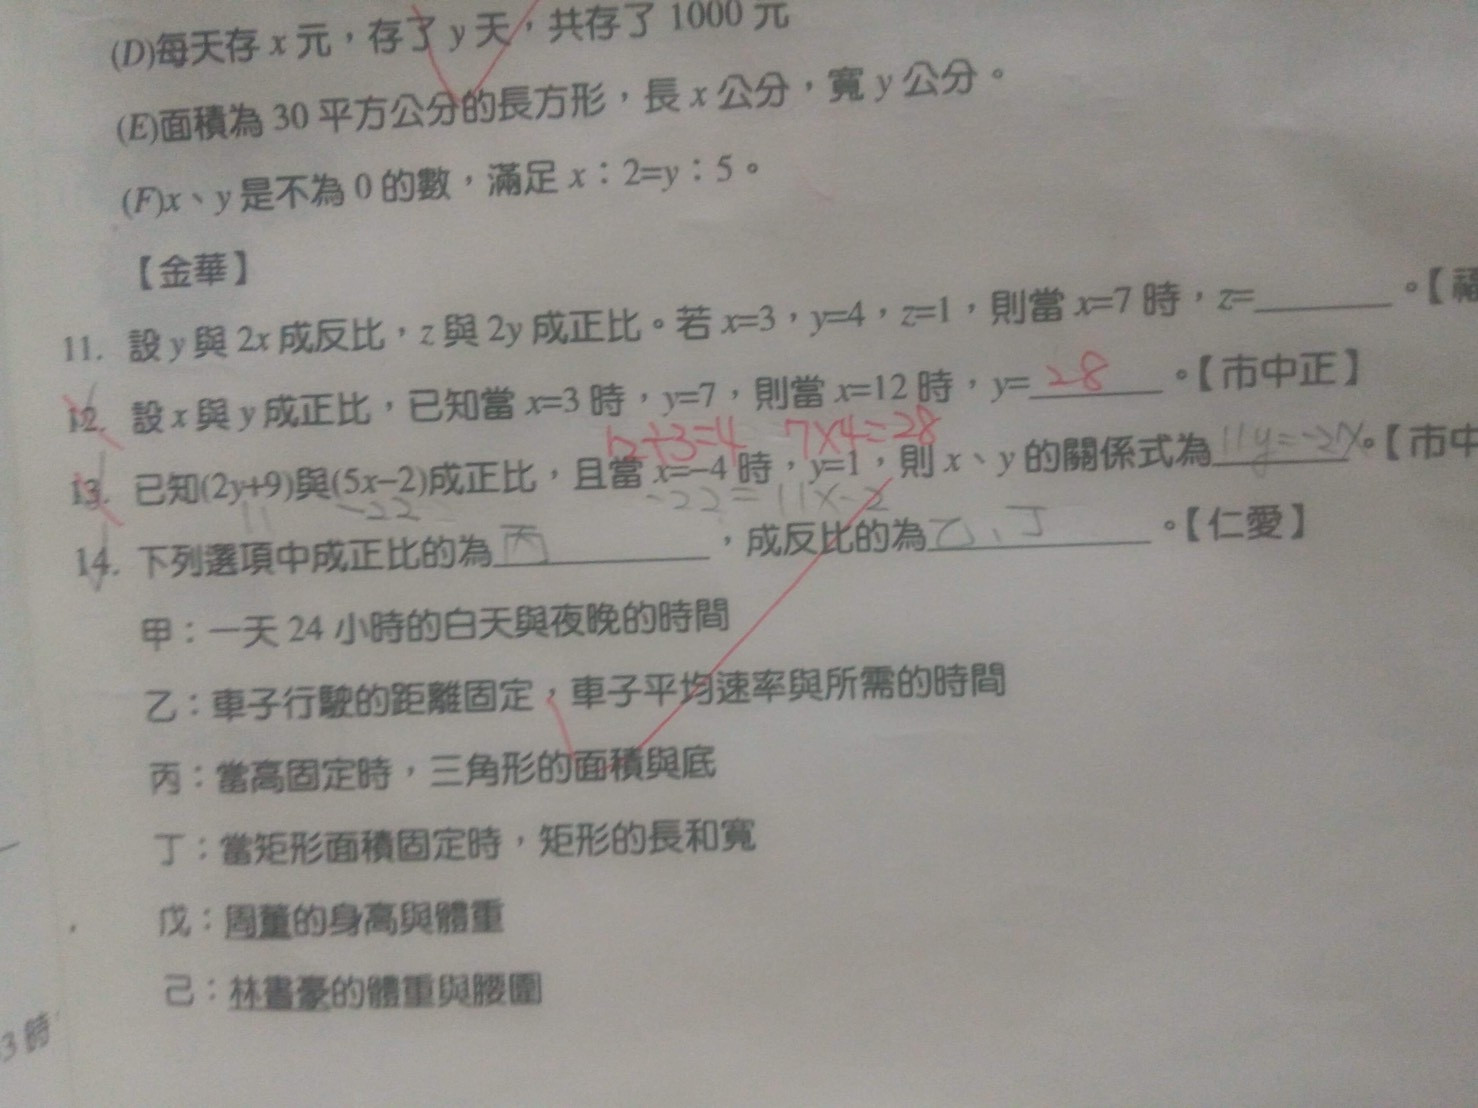 (D)每天存 x 元，存了 y 天，共存了 1000 元
(E)面積為 30 平方公分的長方形，長 x 公分，寬 y 公分。
(F)x、y 是不為 0 的數，滿足 x：2=y：5。
【金華】
11. 設 y 與 2x 成反比，z 與 2y 成正比。若 x=3，y=4，z=1，則當 x=7 時，z=______。【福
12. 設 x 與 y 成正比，已知當 x=3 時，y=7，則當 x=12 時，y= 28 。【市中正】
12÷3=4 7×4=28
13. 已知(2y+9)與(5x−2)成正比，且當 x=−4 時，y=1，則 x、y 的關係式為 。【市中
11 -22 -22=11x-2
14. 下列選項中成正比的為 丙 ，成反比的為 乙、丁 。【仁愛】
甲：一天 24 小時的白天與夜晚的時間
乙：車子行駛的距離固定，車子平均速率與所需的時間
丙：當高固定時，三角形的面積與底
丁：當矩形面積固定時，矩形的長和寬
戊：周董的身高與體重
己：林書豪的體重與腰圍
3 時